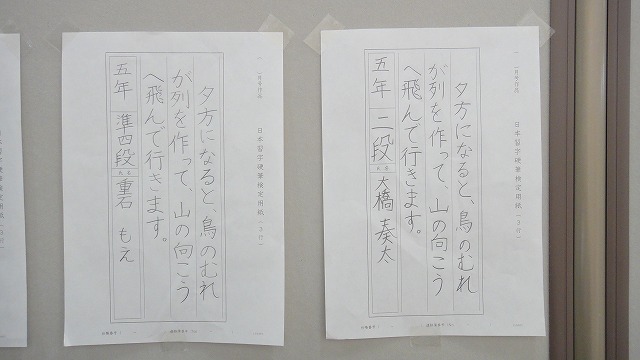 日本習字硬筆検定用紙(3行)
夕方になると、鳥のむれ
が列を作って、山の向こう
へ飛んで行きます。
五年 二段 氏名 大橋 奏太
日本習字硬筆検定用紙(3行)
夕方になると、鳥のむれ
が列を作って、山の向こう
へ飛んで行きます。
五年 準四段 氏名 重石 もえ